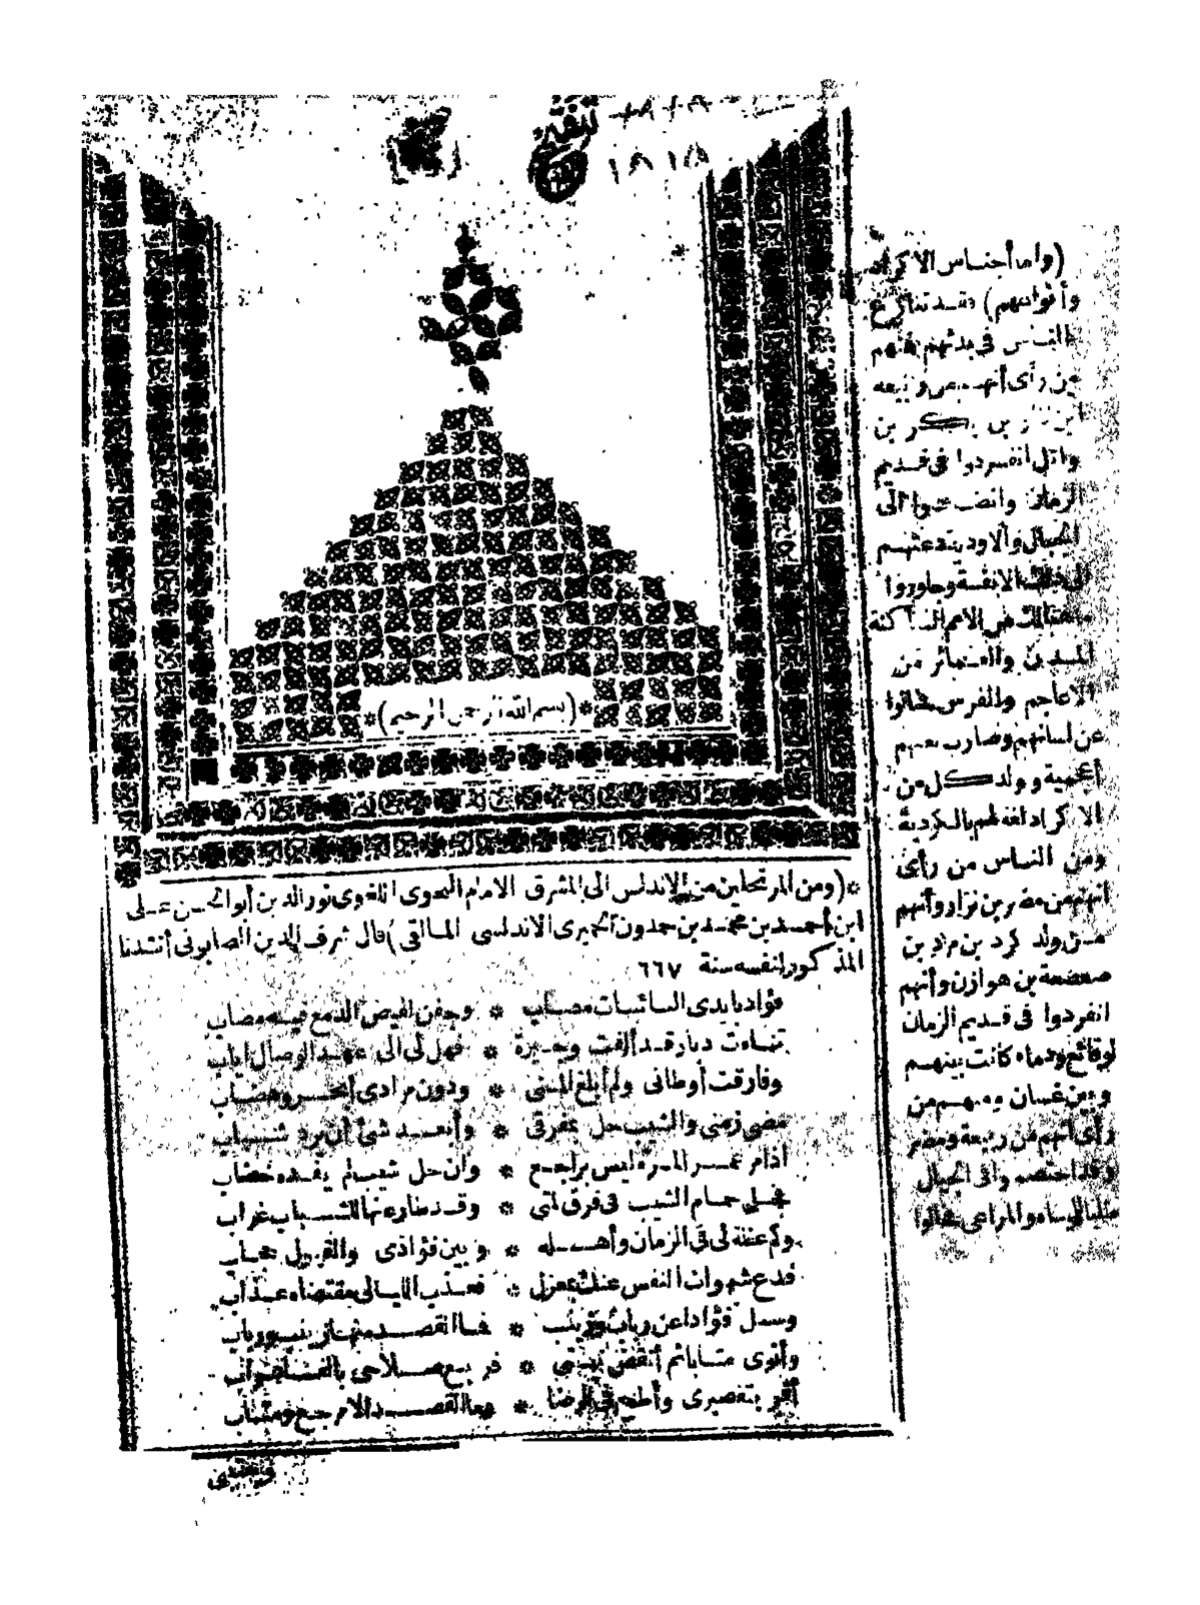 ١٨١٨
*(بسم الله الرحمن الرحيم)*
*(ومن المرتحلين من الاندلس الى المشرق الامام النحوى اللغوى نور الدين أبو الحسن على
ابن أحمد بن محمد بن حمدون الحميرى الاندلسى المالقى) قال شرف الدين الصابونى أنشدنا
المذكور لنفسه سنة ٦٦٧
فؤاد بايدى النائبات مصاب * وجفن لفيض الدمع فيه مصاب
تناءت ديار قد ألفت وجيرة * فهل لى الى عهد الوصال اياب
وفارقت أوطانى ولم أبلغ المنى * ودون مرادى أبحر وهضاب
مضى زمنى والشيب حل بمفرقى * وأبعد شئ أن يرد شباب
اذا مر عمر المرء ليس براجع * وان حل شيب لم يفده خضاب
فحل حمام الشيب فى فرق لمتى * وقد طار عنها للشباب غراب
وكم عظة لى فى الزمان وأهله * وبين فؤادى والقبول حجاب
فدع شهوات النفس عنك بمعزل * فعذب الليالى مقتضاه عذاب
وسل فؤادا عن رباب وزينب * فما القصد منها زينب ورباب
وأنوى متابا ثم أنقض نيتى * فربع صلاحى بالفساد خراب
أقر بتقصيرى وأطمع فى الرضا * وما القصد الا مرجع ومتاب
(واما أجناس الاكراد
وأنواعهم) فقد تنازع
الناس فى بدئهم فمنهم
من رأى أنهم من ربيعة
ابن نزار بن بكر بن
وائل انفردوا فى قديم
الزمان وانضموا الى
الجبال والاودية دعتهم
الى ذلك الانفة وجاوروا
من هنالك من الامم الساكنة
المدن والعمائر من
الاعاجم والفرس فحالوا
عن لسانهم وصارت لغتهم
أعجمية وولد كل من
الاكراد لغة لهم بالكردية
ومن الناس من رأى
أنهم من مضر بن نزار وأنهم
من ولد كرد بن مرد بن
صعصعة بن هوازن وأنهم
انفردوا فى قديم الزمان
لوقائع ودماء كانت بينهم
وبين غسان ومنهم من
رأى أنهم من ربيعة ومضر
وقد اعتصموا فى الجبال
طلبا للمياه والمراعى فحالوا